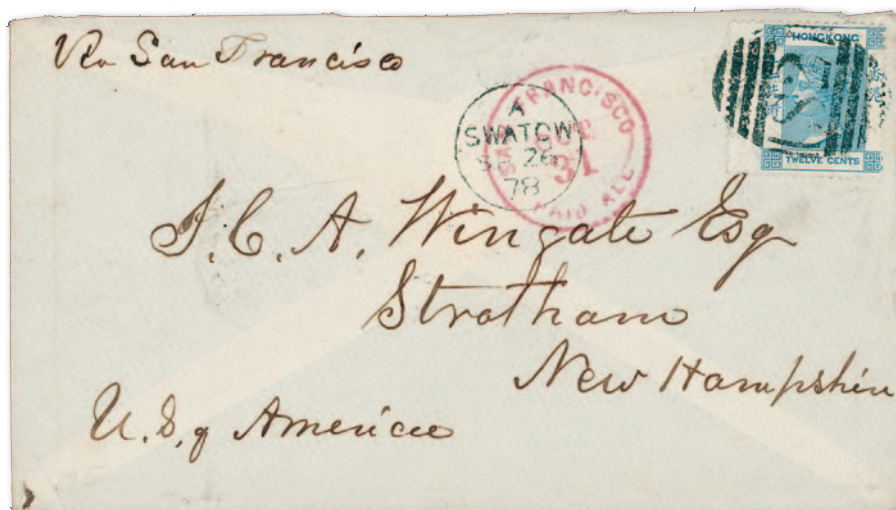 Via San Francisco
HONGKONG
TWELVE CENTS
A
SWATOW
SP 26
78
SAN FRANCISCO
OCT
31
PAID ALL
J. C. A. Wingate Esq
Stratham
New Hampshire
U. S. of America